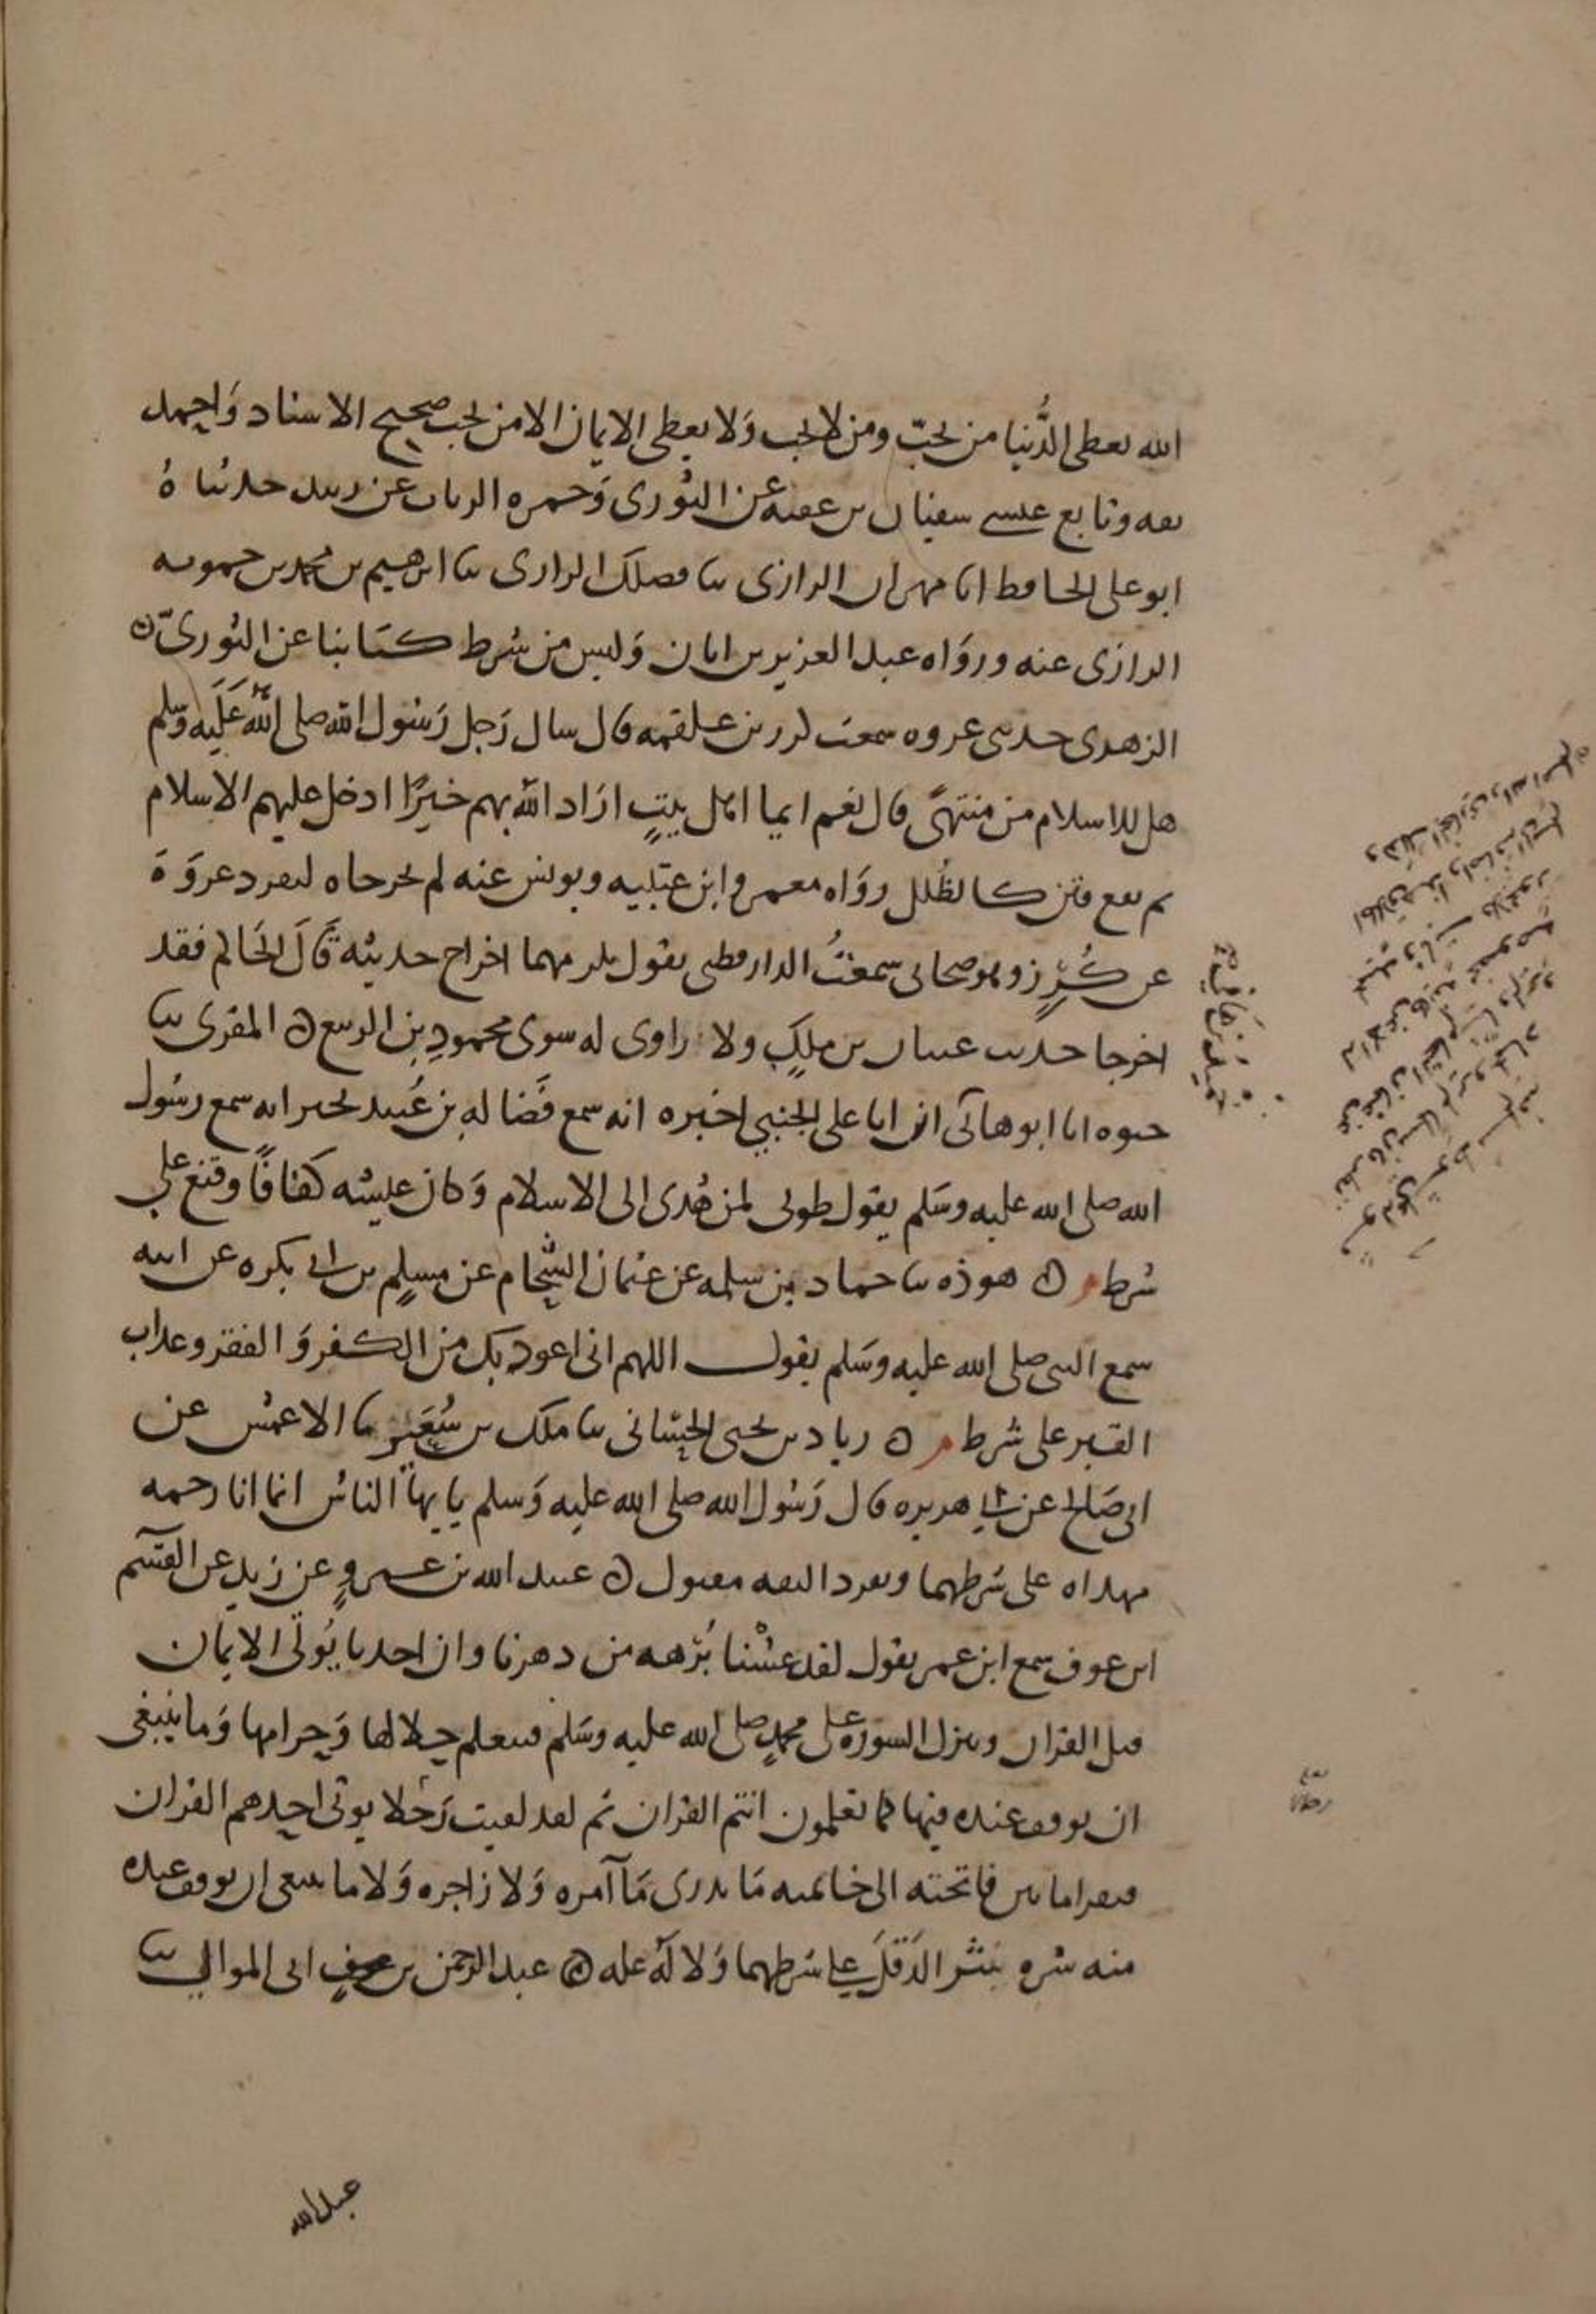 الله يعطي الدُّنيا من يحبّ ومن لا يحب وَلا يعطي الايمان الا من يحب صحيح الاسناد وَاحمد
ثقه وتابع عيسى سفيان بن عقبه عن الثوري وَحمزه الزيات عن زبيد حدثناهُ
ابو على الحافظ انا مهران الرازي ثنا فضلك الرازي ثنا ابرهيم بن محمد بن حمويه
الرازي عنه وروَاه عبد العزيز بن ابان وَليس من شرط كتابنا عن الثوريّ ٥
الزهدى حدثني عروه سمعت كرز بن علقمه قال سال رَجل رَسُول الله صلى الله عَلَيه وَسلم
هل للاسلام من منتهًى قال نعم ايما اهل بيتٍ ارَاد الله بهم خيرًا ادخل عليهم الاسلام
ثم تقع فتن كالظُلل روَاه معمر وابن عيينه ويونس عنه لم يخرجاه لتفرد عروَةَ
عن كُرْزٍ وهو صحابي سمعتُ الدارقطني يقول يلزمهما اخراج حديثه قَالَ الحَاكم فقد
اخرجا حديث عتبان بن ملكٍ ولا راوى له سوى محمودِ بن الربيع ٥ المقرى ثنا
حيوه انا ابو هانى ان ابا على الجنبي اخبره انه سمع فَضاله بن عُبيد يخبر انه سمع رسُول
الله صلى الله عليه وسَلم يقول طوبى لمن هُدى الى الاسلام وَكان عيشه كفافًا وقنع على
شرط م ٥ هوذه ثنا حماد بن سلمه عن عثمان الشحّام عن مسلمِ بن ابي بكره عن ابيه
سمع النبي صلى الله عليه وسَلم يقول اللهم انى اعوذ بك من الكفر وَالفقر وعذاب
القبر على شرط م ٥ زياد بن يحيى الحسّانى ثنا ملك بن سُعَير ثنا الاعمش عن
ابى صَالح عن ابي هريره قال رَسُول الله صلى الله عليه وَسلم يا يهاّ الناسُ انما انا رحمه
مهداه على شرطهما وتفرد الثقه مقبول ٥ عبيد الله بن عمروٍ عن زيد عن القسَم
ابن عوف سمع ابن عمر يقول لقد عشْنا بُرْهه من دهرنا وان احدنا يُوتَى الايمان
قبل القران وتنزل السورَه على محمدٍ صلى الله عليه وسَلم فيتعلم حلالها وَحرامها وَما ينبغى
ان يوقف عنده فيها كما تعلمون انتم القران ثم لقد لقيت رَجلا يوتى احدهم القران
فيقرا ما بين فاتحته الى خاتمته مَا يدرى مَا آمره وَلا زاجره وَلا ما ينبغى ان يوقف عنده
منه ينثره نَثْر الدَقَلَ على شرطهما وَلا لَهُ عله ٥ عبد الرحمن بن ابى الموالي ثنا
عبد الله